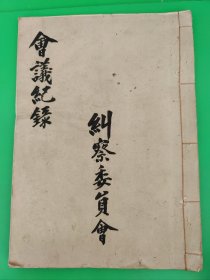 會議紀錄
糾察委員會